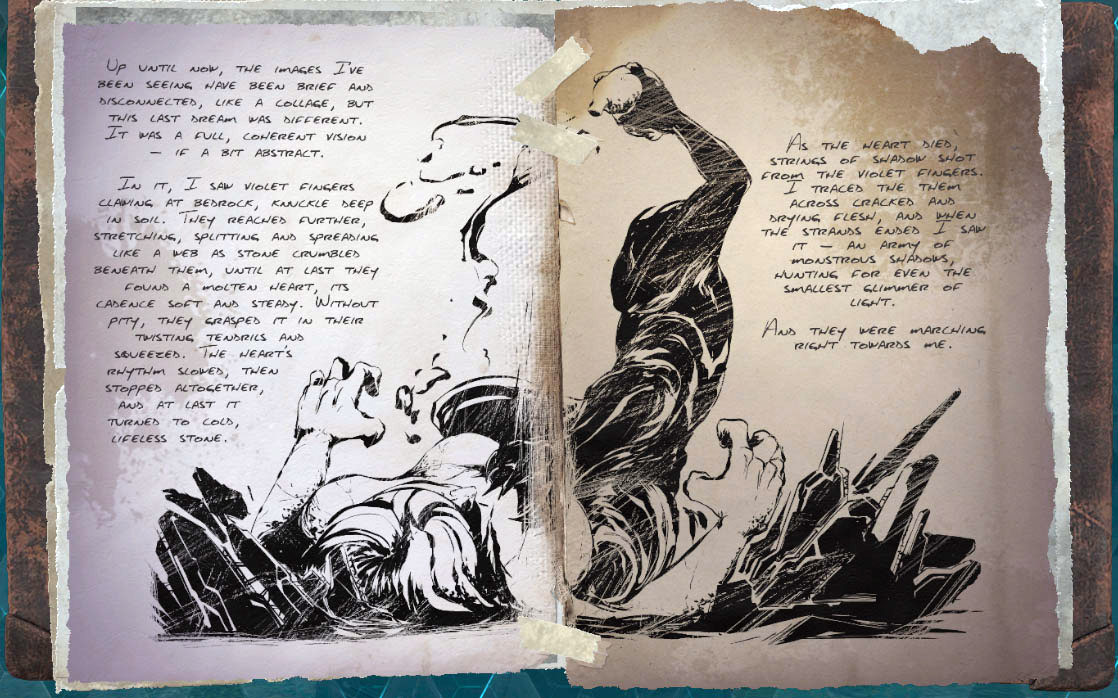 Up until now, the images I've
been seeing have been brief and
disconnected, like a collage, but
this last dream was different.
It was a full, coherent vision
– if a bit abstract.
In it, I saw violet fingers
clawing at bedrock, knuckle deep
in soil. They reached further,
stretching, splitting and spreading
like a web as stone crumbled
beneath them, until at last they
found a molten heart, its
cadence soft and steady. Without
pity, they grasped it in their
twisting tendrils and
squeezed. The heart's
rhythm slowed, then
stopped altogether,
and at last it
turned to cold,
lifeless stone.
As the heart died,
strings of shadow shot
from the violet fingers.
I traced the them
across cracked and
drying flesh, and when
the strands ended I saw
it – an army of
monstrous shadows,
hunting for even the
smallest glimmer of
light.
And they were marching
right towards me.